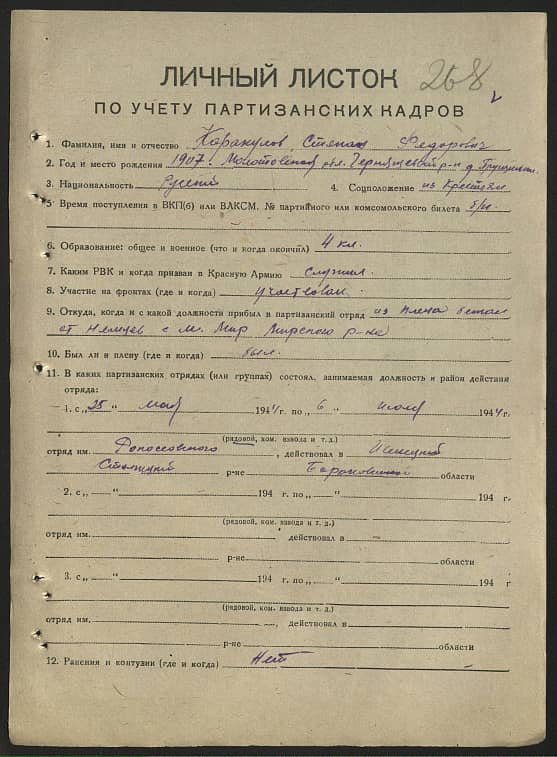 ЛИЧНЫЙ ЛИСТОК 268
ПО УЧЕТУ ПАРТИЗАНСКИХ КАДРОВ
1. Фамилия, имя и отчество Каракулов, Степан Федорович
2. Год и место рождения 1907. Молотовская обл. р-н д.
3. Национальность Русский 4. Соцположение из Крестьян
5. Время поступления в ВКП(б) или ВЛКСМ, № партийного или комсомольского билета б/п.
6. Образование: общее и военное (что и когда окончил) 4 кл.
7. Каким РВК и когда призван в Красную Армию служил.
8. Участие на фронтах (где и когда) участвовал.
9. Откуда, когда и с какой должности прибыл в партизанский отряд из плена бежал
от Немцев с м. Мир Мирского р-на
10. Был ли в плену (где и когда) был.
11. В каких партизанских отрядах (или группах) состоял, занимаемая должность и район действия
отряда:
1. с „25" мая 1944 г. по „6" июля 1944 г.
(рядовой, ком. взвода и т. д.)
отряд им. , действовал в
р-не Барановичской области
2. с „ " 194 г. по „ " 194 г.
(рядовой, ком. взвода и т. д.)
отряд им. , действовал в
р-не области
3. с „ " 194 г. по „ " 194 г
(рядовой, ком. взвода и т. д.)
отряд им. , действовал в
р-не области
12. Ранения и контузии (где и когда) Нет